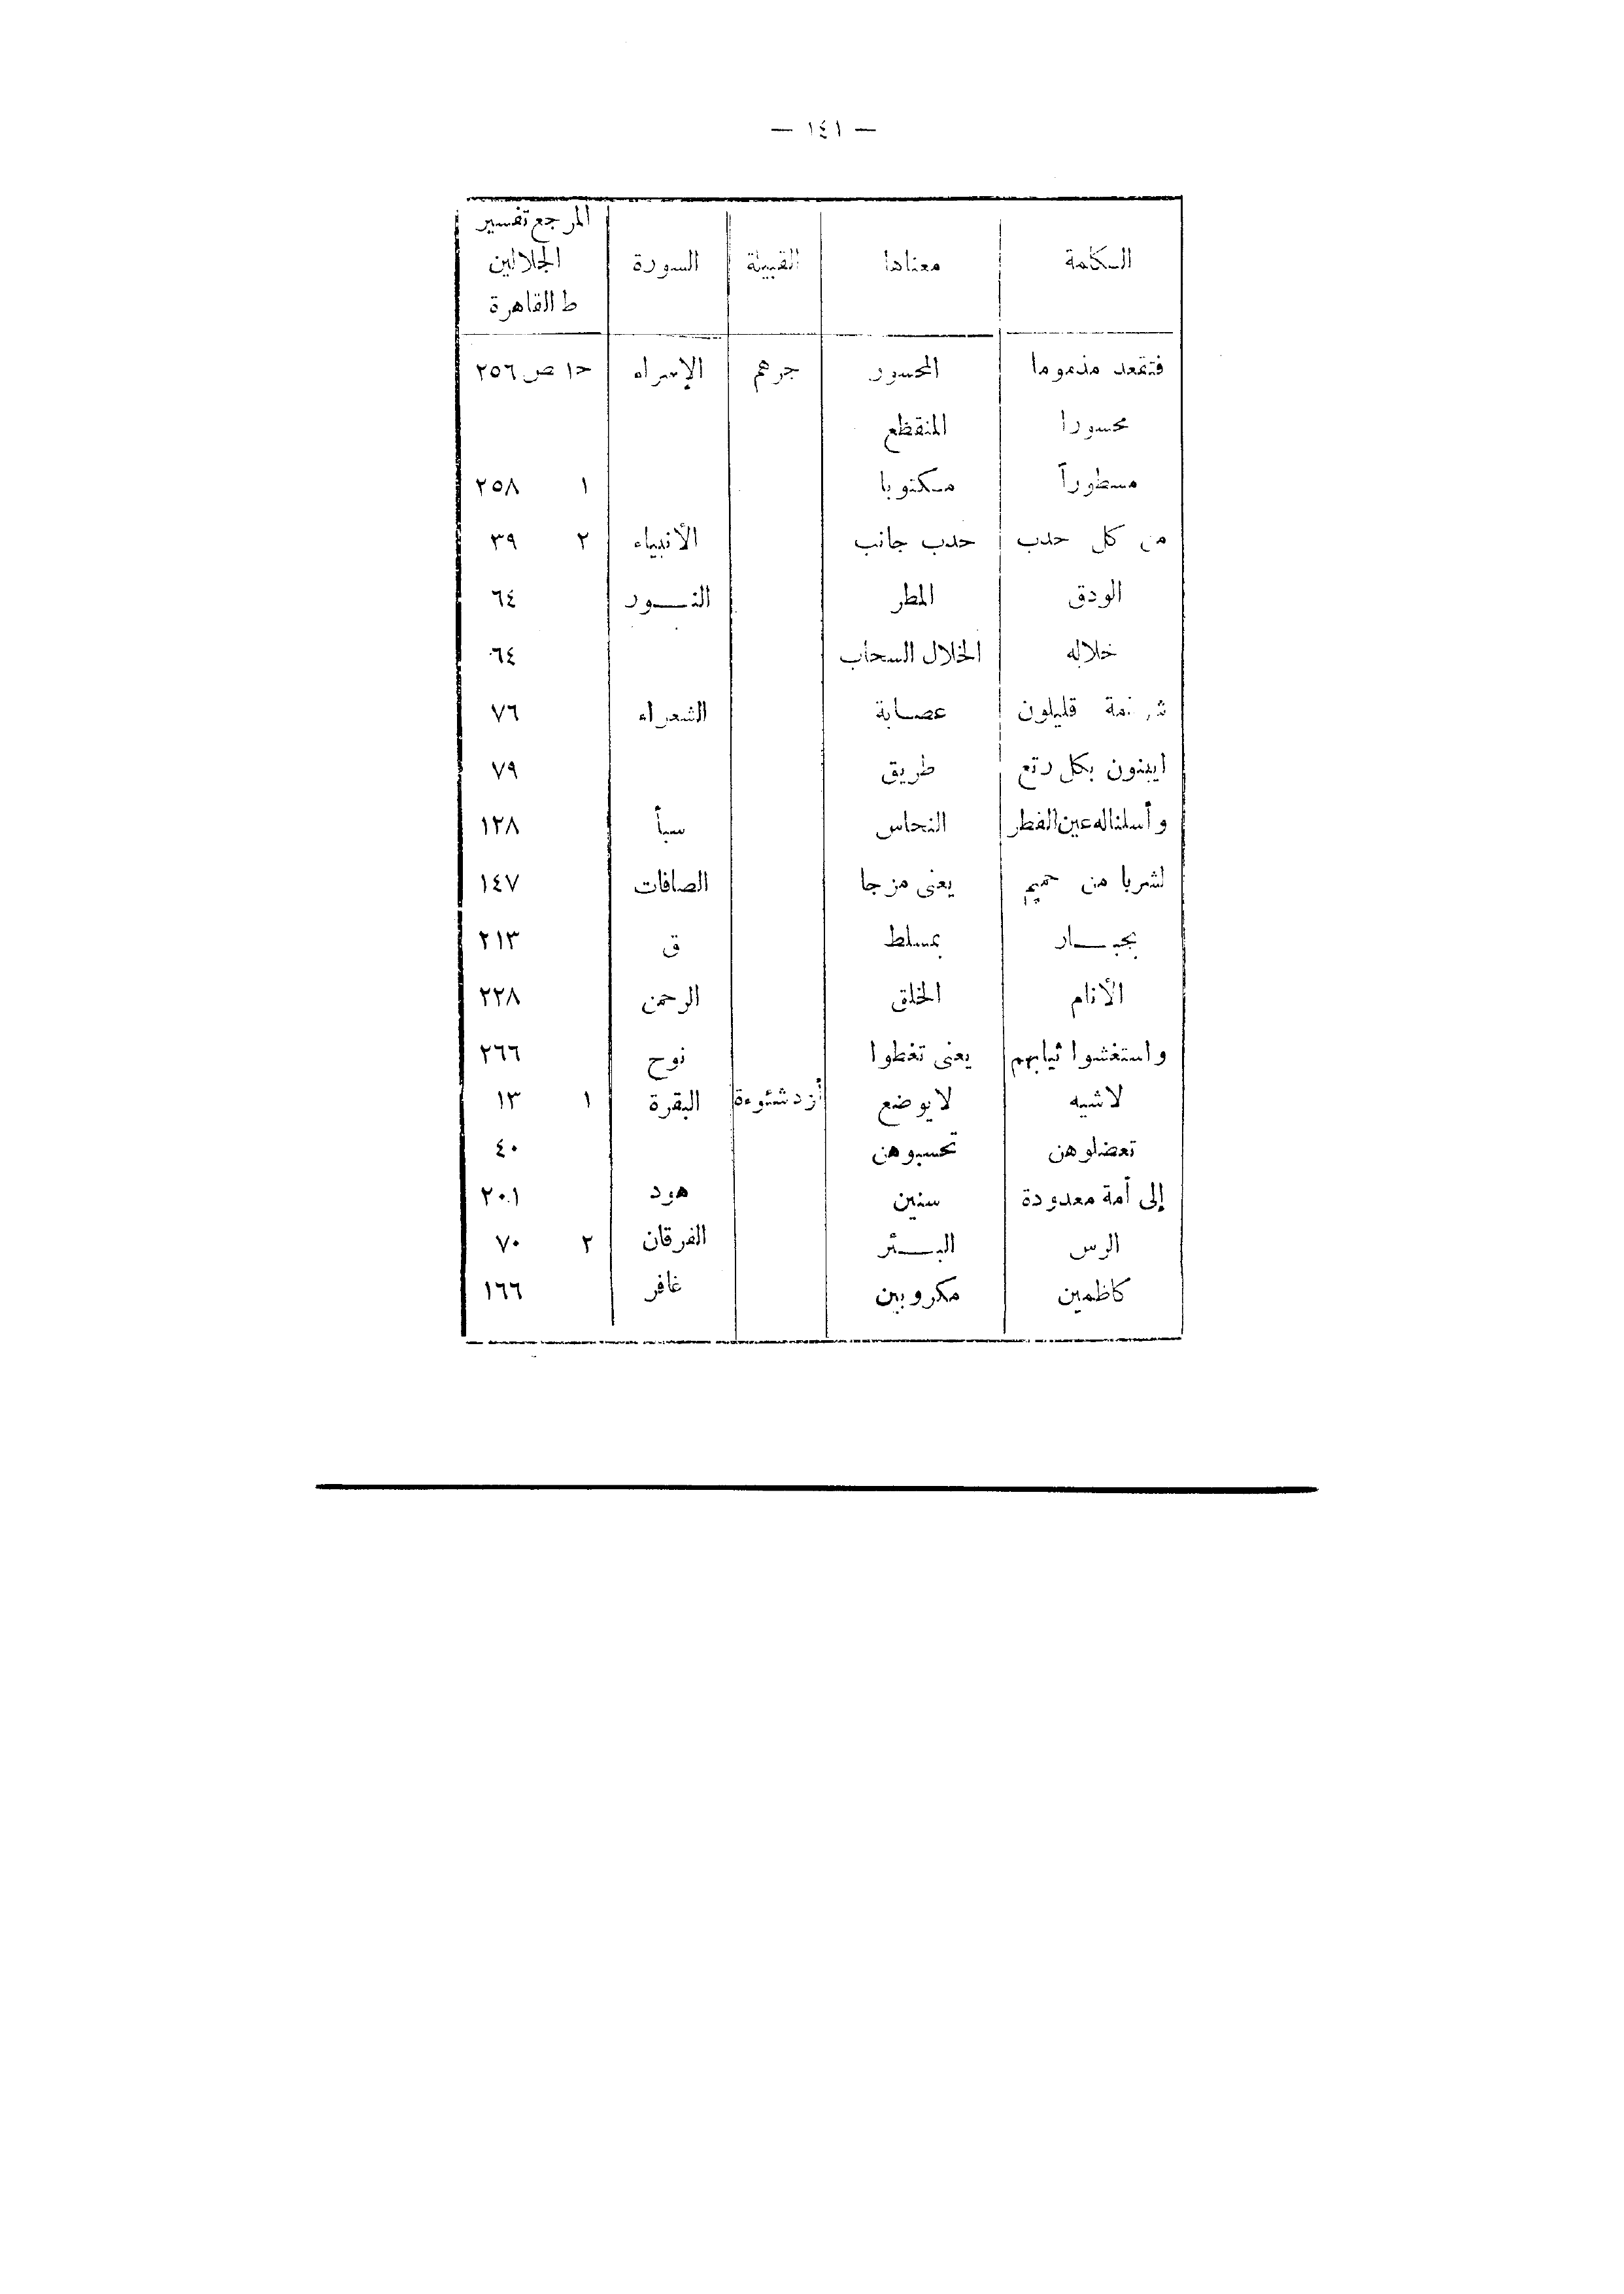 — ١٤١ —
الكلمة معناها القبيلة السورة المرجع تفسير
الجلالين
ط القاهرة
فتقعد مذموما المحسور جرهم الإسراء ح١ ص ٢٥٦
محسورا المنقظع
مسطوراً مكتوبا ١ ٢٥٨
من كل حدب حدب جانب الأنبياء ٢ ٣٩
الودق المطر النــور ٦٤
خلاله الخلال السحاب ٦٤
قليلون عصابة الشعراء ٧٦
بكل طريق ٧٩
وأسلنا له عين الفطر النحاس سبأ ١٢٨
لشربا من حميم يعنى مزجا الصافات ١٤٧
بجبــار بمسلط ق ٢١٣
الأنام الخلق الرحمن ٢٢٨
واستغشوا ثيابهم يعنى تغطوا نوح ٢٦٦
لاشيه لايوضع أزدشنوءة البقرة ١ ١٣
تعضلوهن تحسبوهن ٤٠
إلى أمة معدودة سنين هود ٢٠١
الرس البــئر الفرقان ٢ ٧٠
كاظمين مكروبين غافر ١٦٦